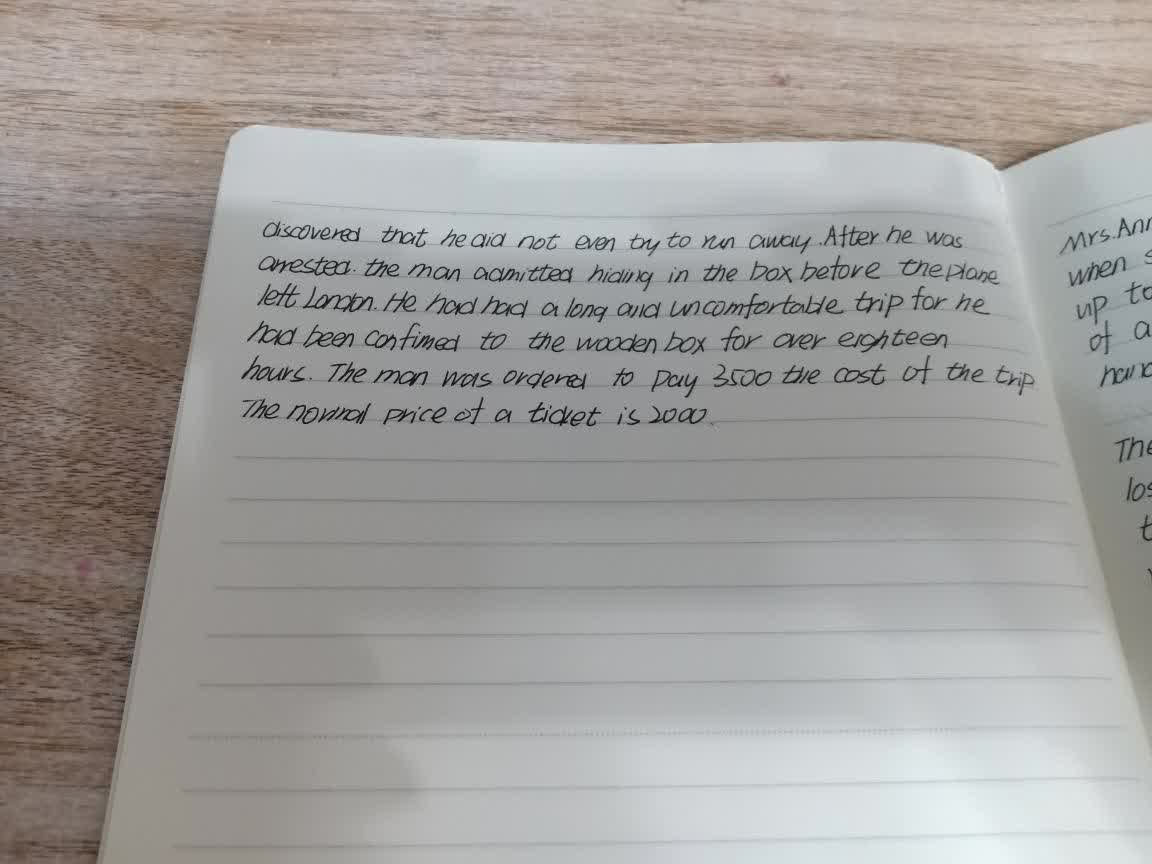 discovered that he did not even try to run away. After he was
arrested. the man admitted hiding in the box before the plane
left London. He had had a long and uncomfortable trip for he
had been confimed to the wooden box for over eighteen
hours. The man was ordered to pay 3500 the cost of the trip
The normal price of a ticket is 2000.
Mrs. Ann
when s
up to
of a
hand
The
los
t